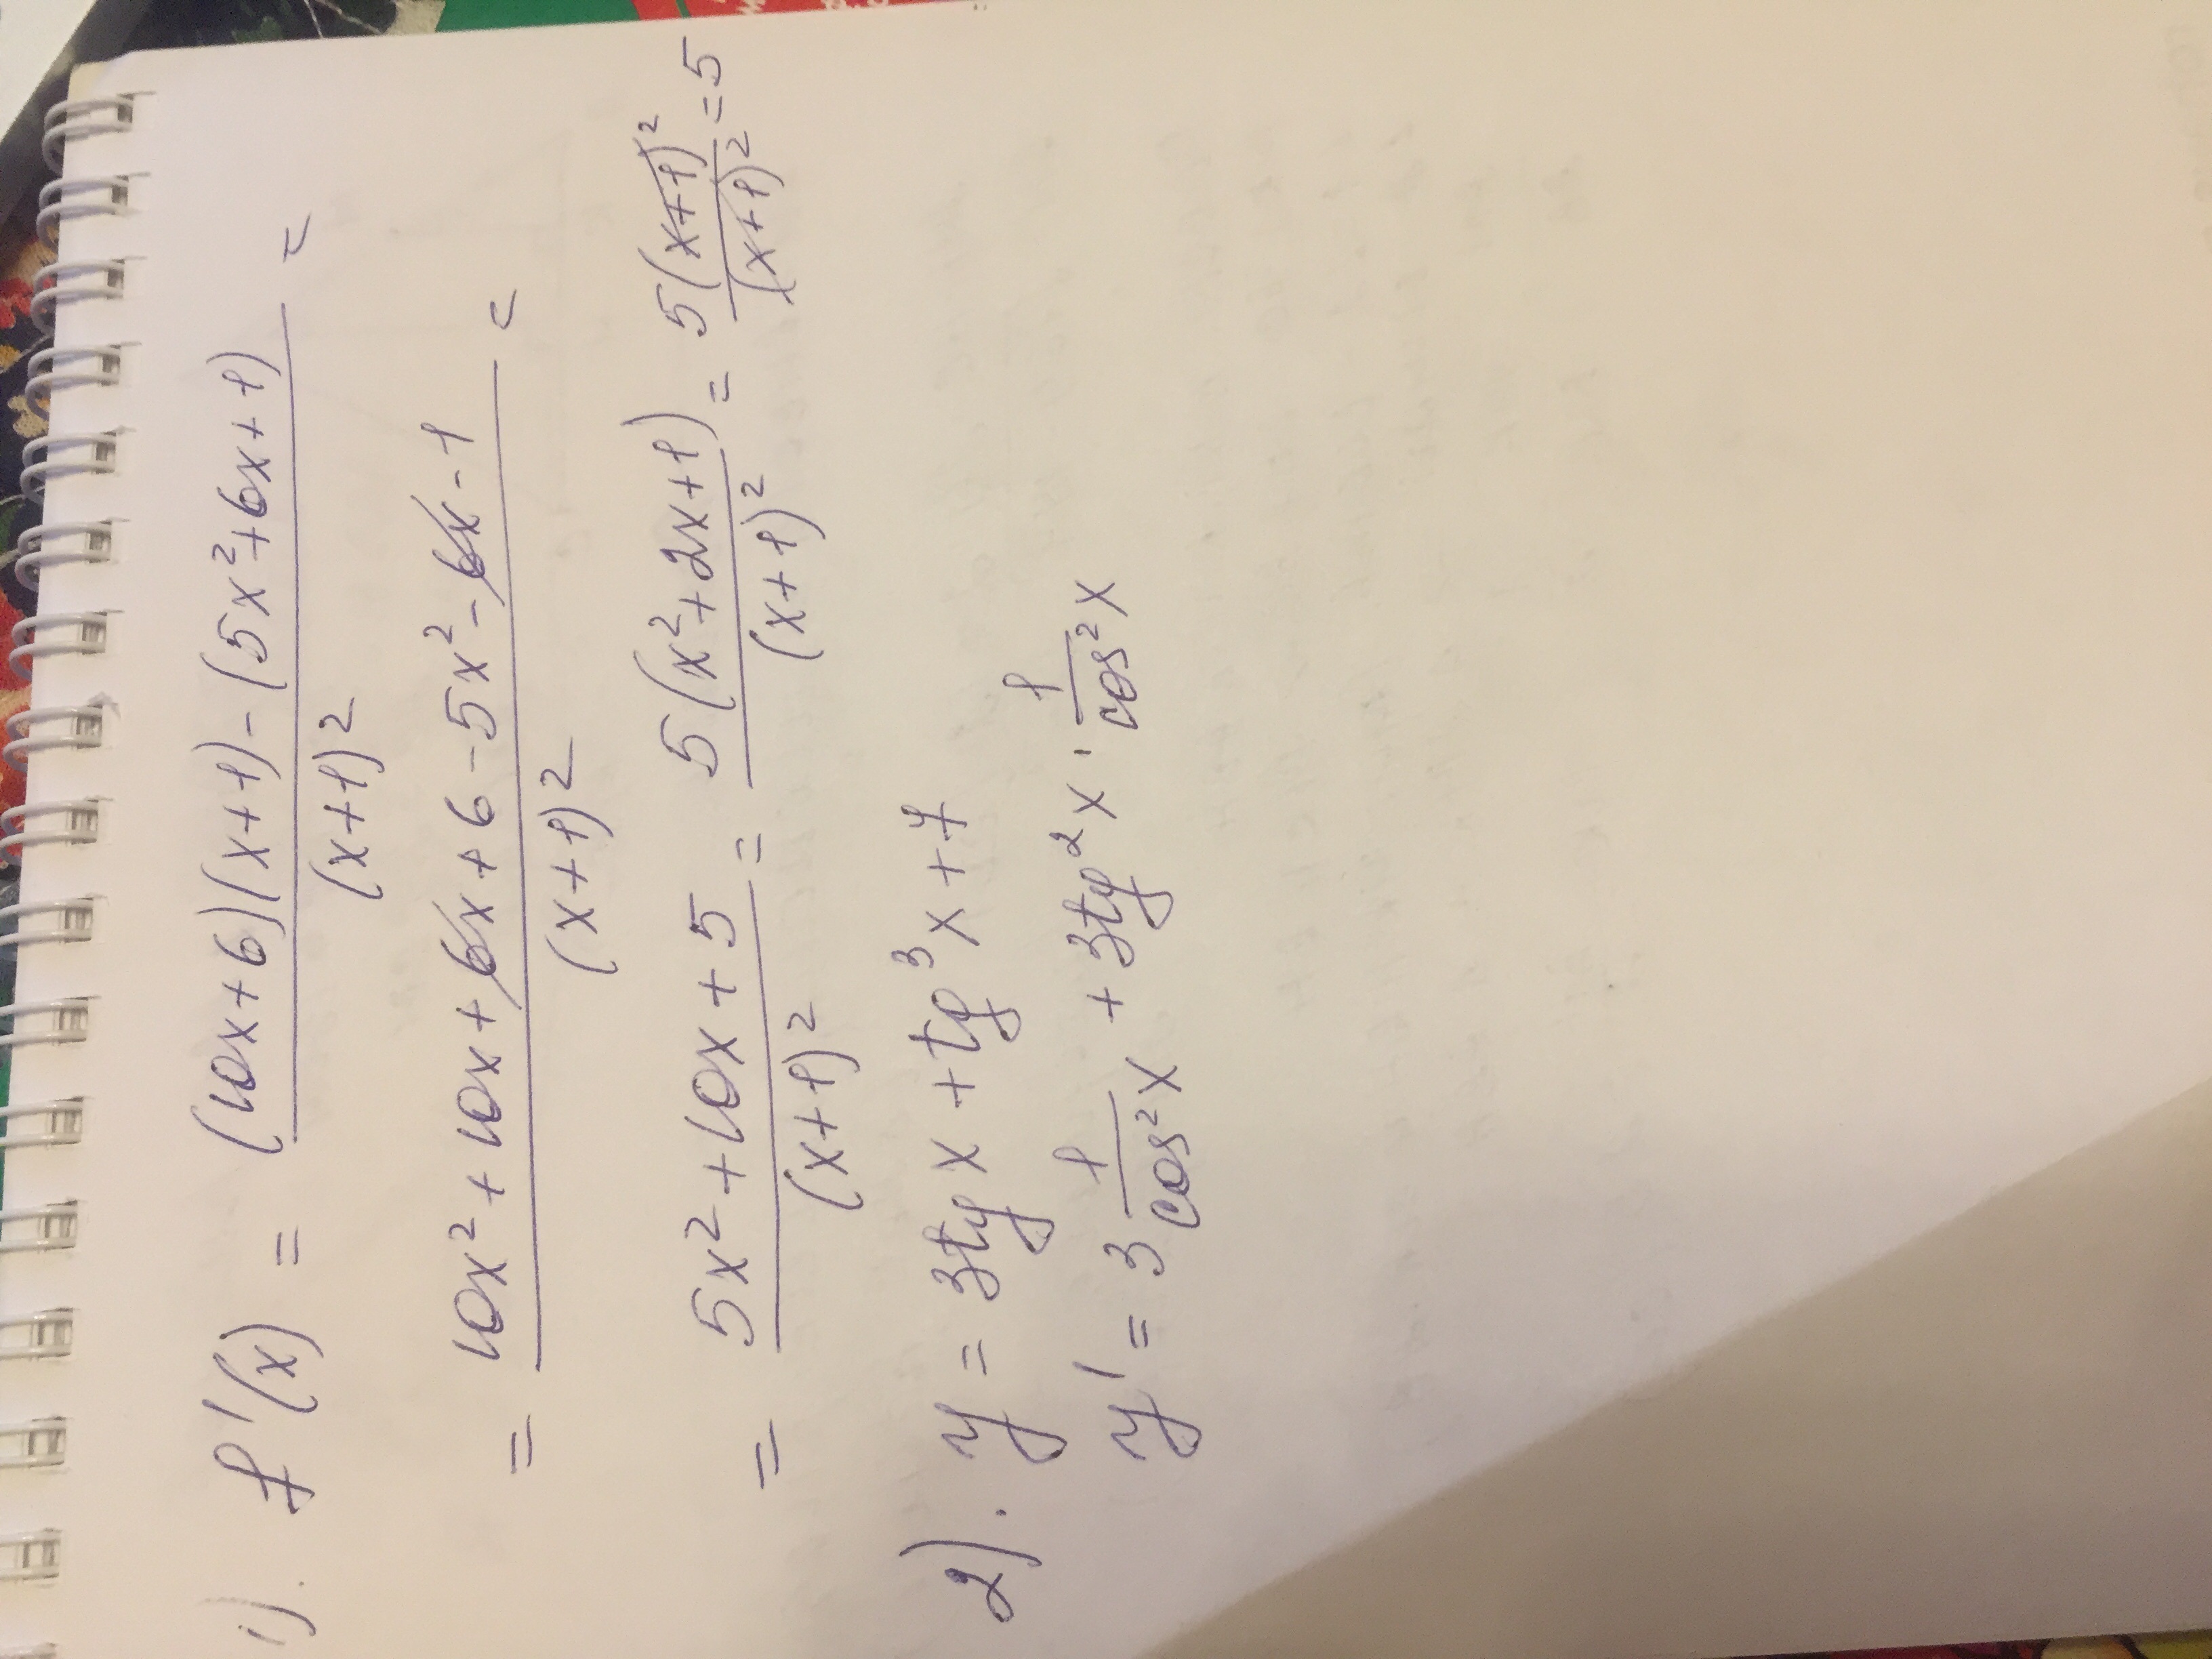 1). f'(x) = ((10x+6)(x+1)-(5x²+6x+1))/(x+1)² =
= (10x²+10x+6x+6-5x²-6x-1)/(x+1)² =
= (5x²+10x+5)/(x+1)² = 5(x²+2x+1)/(x+1)² = 5(x+1)²/(x+1)² = 5
2). y = 3tg x + tg³x + 7
y' = 3 1/cos²x + 3tg²x · 1/cos²x